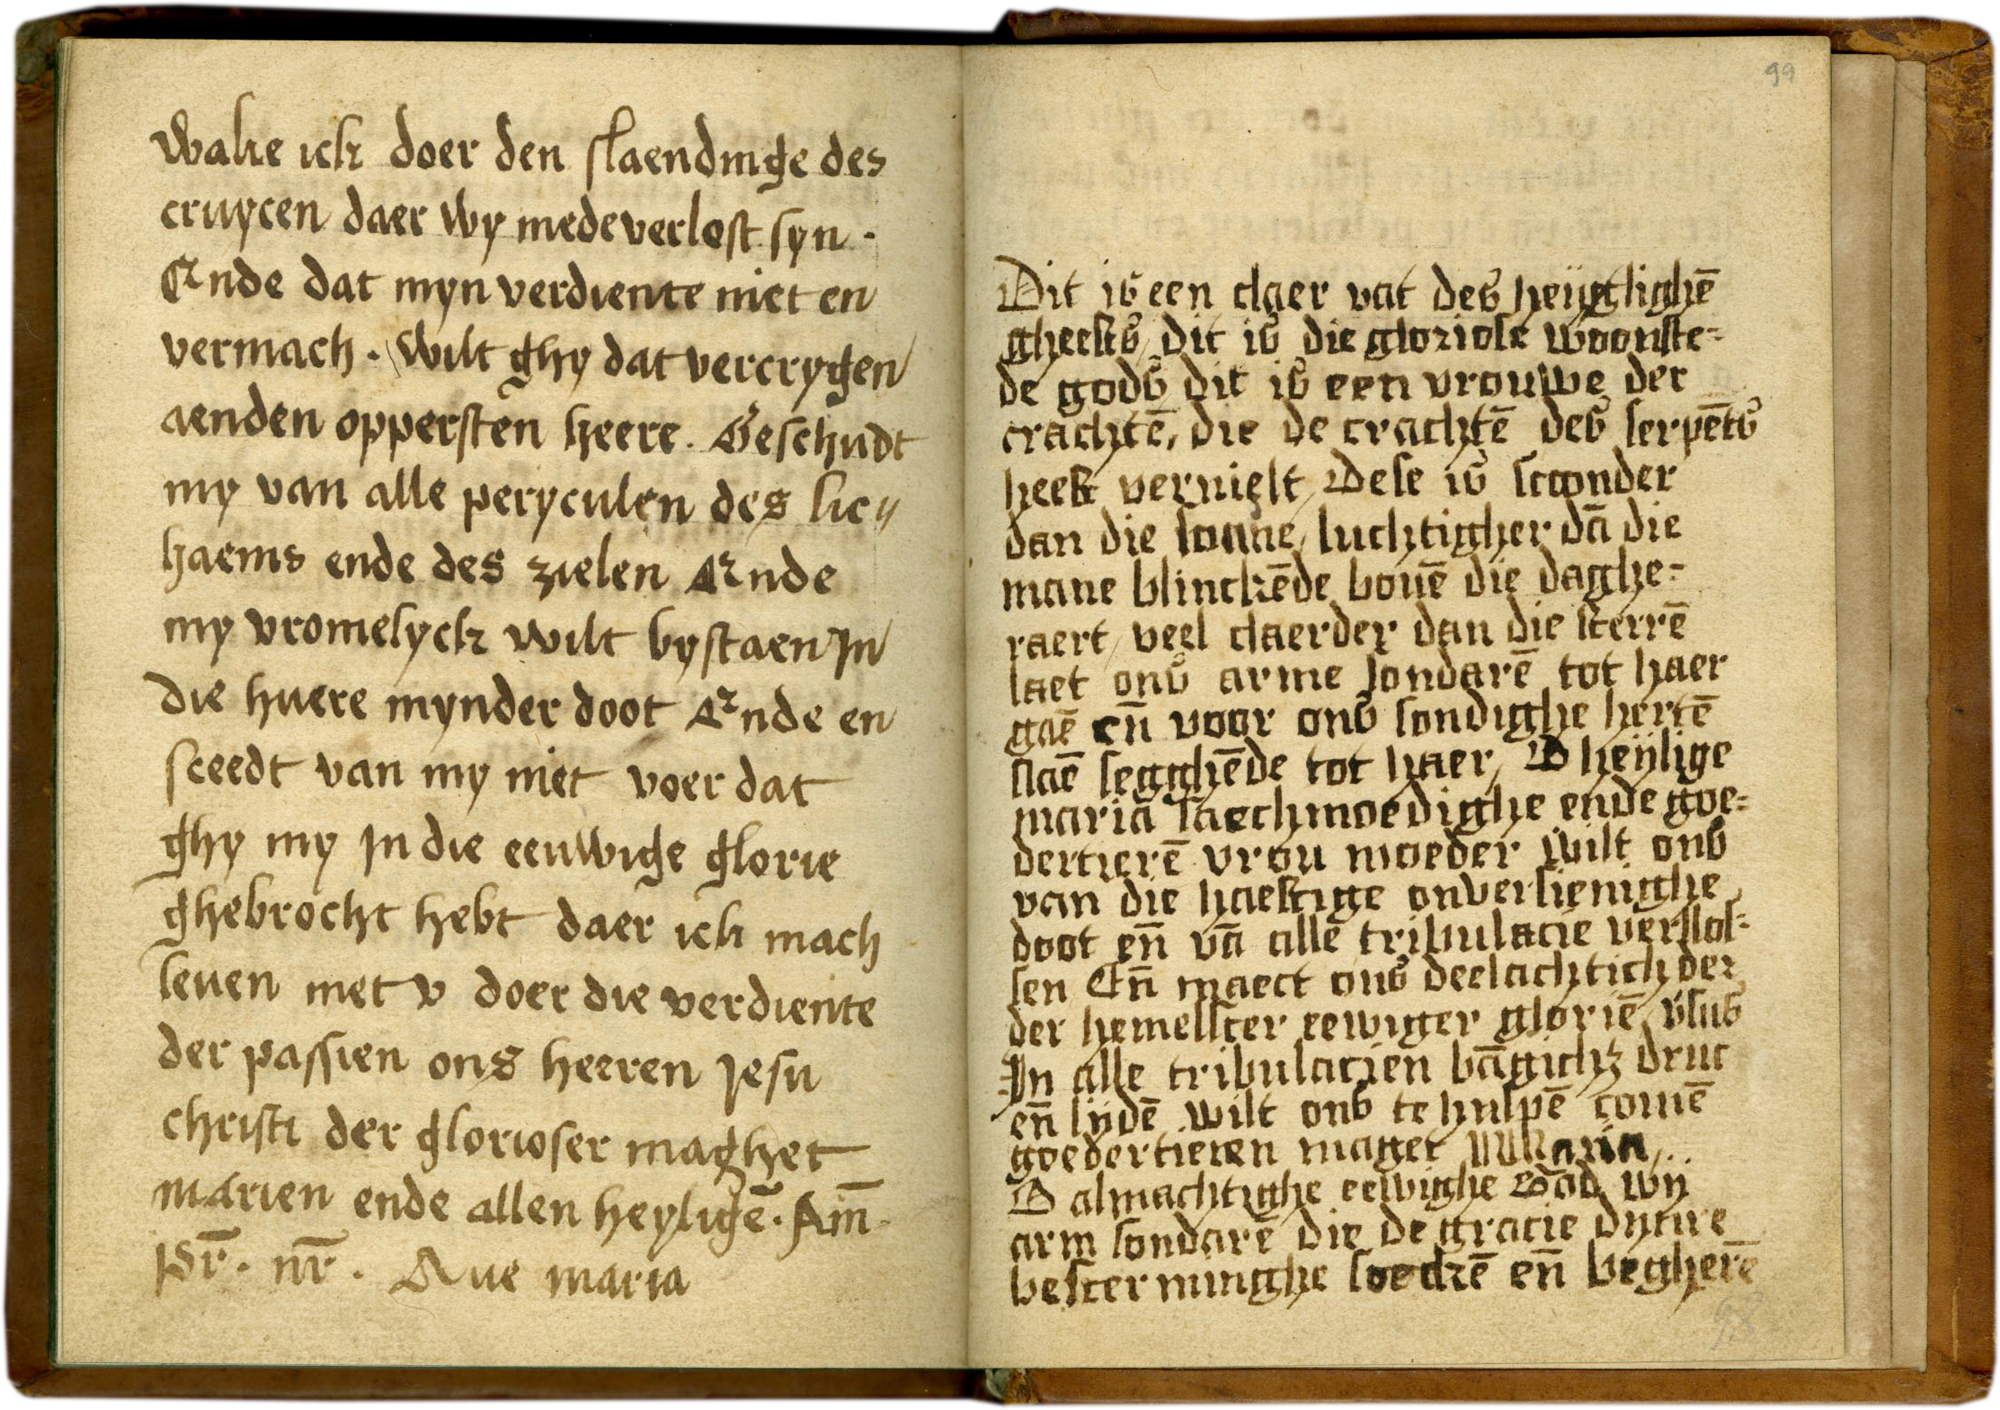 wake ick doer den staendinge des
cruycen daer wy mede verlost syn .
Ende dat myn verdiente niet en
vermach . Wilt ghy dat vercrygen
aenden oppersten heere . Beschudt
my van alle peryculen des lic〃
haems ende des zielen Ende
my vromelyck wilt bystaen In
die huere mynder doot Ende en
sceedt van my niet voer dat
ghy my In die eeuwige glorie
ghebrocht hebt daer ick mach
leuen met v doer die verdiente
der passien ons heeren Jesu
christi der glorioser maghet
marien ende allen heyligē . Am̄
pr̄ . nr̄ . Aue maria
99
Dit is een claer vat des heijlighē
gheests / dit is die gloriose woonste=
de gods dit is een vrouwe der
crachtē, die de crachtē des serpēts
heeft vernielt / Dese is scoonder
dan die sonne / luchtigher dā die
mane blinckēde bouē die daghe=
raert / veel claerder dan die sterrē
laet ons arme sondarē tot haer
gaē en̄ voor ons sondighe hertē
slaē segghēde tot haer / O heijlige
maria saechmoedighe ende goe=
dertierē vrou moeder wilt ons
van die haestige onversienighe
doot en̄ vā alle tribulacie verslos=
sen En̄ maect ons deelachtich der
der hemelscer eewiger gloriē v̄sus
In alle tribulacien bāgich3 druc
en̄ lijdē wilt ons te hulpē comē
goedertieren maget Maria / . .
O almachtighe eewighe God wij
arm sondarē die de gracie dynre
bescerminghe soeckē en̄ begherē
98